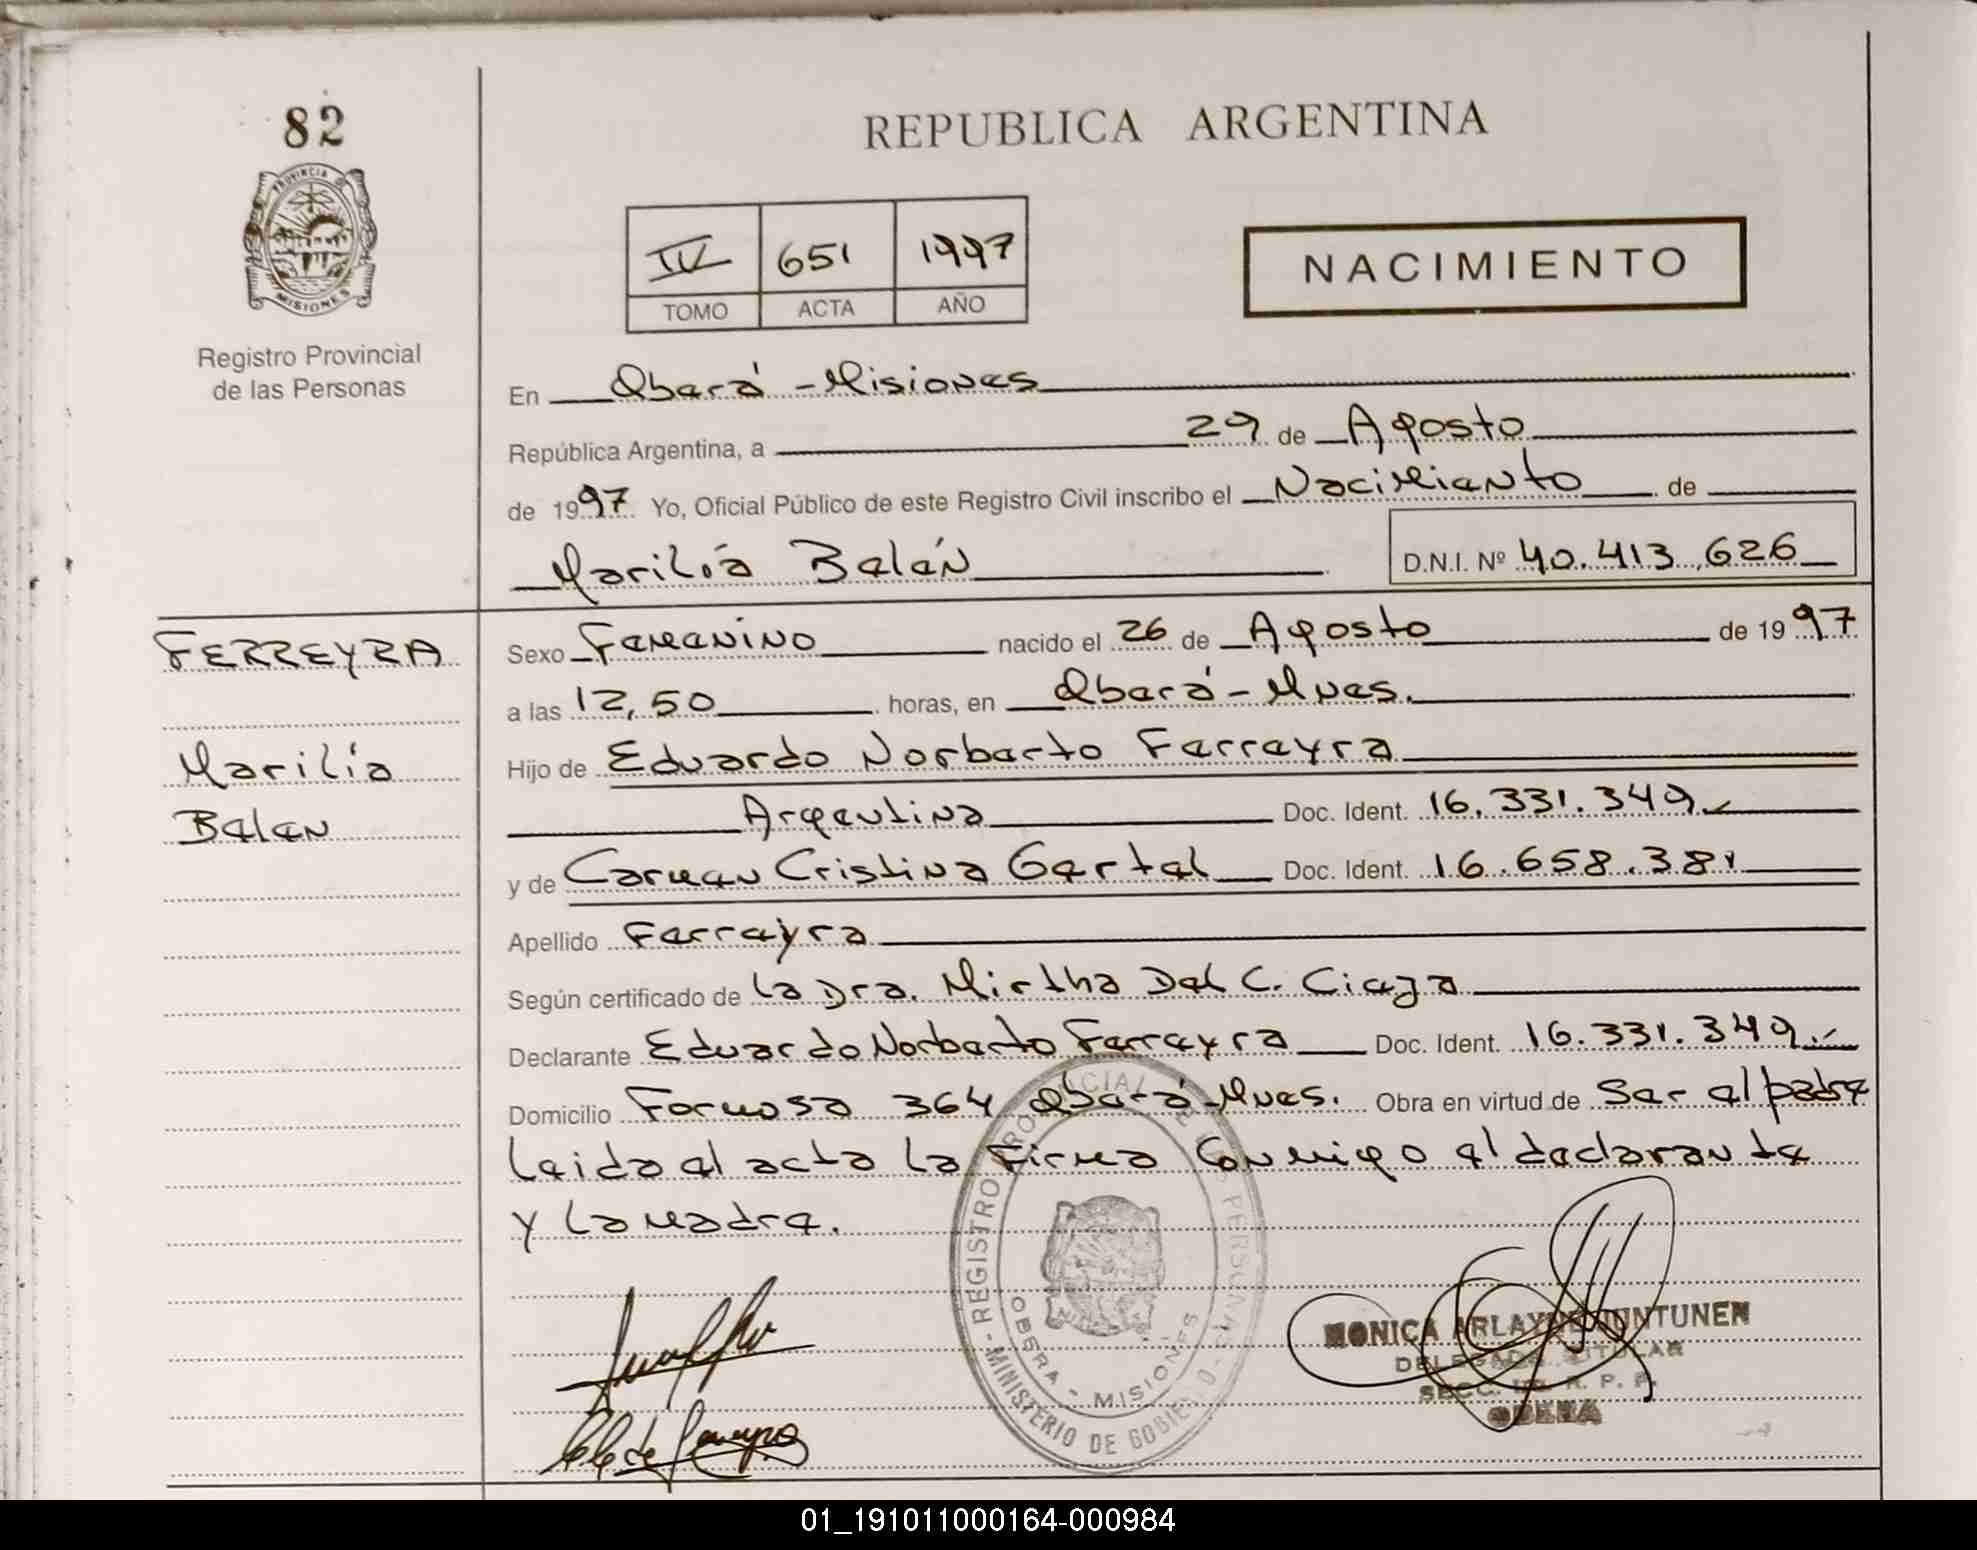 82
PROVINCIA DE
MISIONES
Registro Provincial
de las Personas
REPUBLICA ARGENTINA
IV 651 1997
TOMO ACTA AÑO
NACIMIENTO
En Oberá - Misiones
República Argentina, a 29 de Agosto
de 1997 Yo, Oficial Público de este Registro Civil inscribo el Nacimiento de
Marilía Belén D.N.I. Nº 40.413.626
FERREYRA
Marilía
Belen
Sexo Femenino nacido el 26 de Agosto de 1997
a las 12,50 horas, en Oberá - Mnes.
Hijo de Eduardo Norberto Ferreyra
Argentina Doc. Ident. 16.331.349
y de Carmen Cristina Gertel Doc. Ident. 16.658.381
Apellido Ferreyra
Según certificado de la Dra. Mirtha Del C. Cieza
Declarante Eduardo Norberto Ferreyra Doc. Ident. 16.331.349
Domicilio Formosa 364 Oberá - Mnes. Obra en virtud de Ser el padre
Leida el acta la Firma Conmigo el declarante
y la madre.
REGISTRO PROVINCIAL DE LAS PERSONAS
OBERA - MISIONES
MINISTERIO DE GOBIERNO
MONICA ARLAYNE JUNTUNEN
DELEGADA TITULAR
SECC. R. P. P.
OBERA
01_191011000164-000984